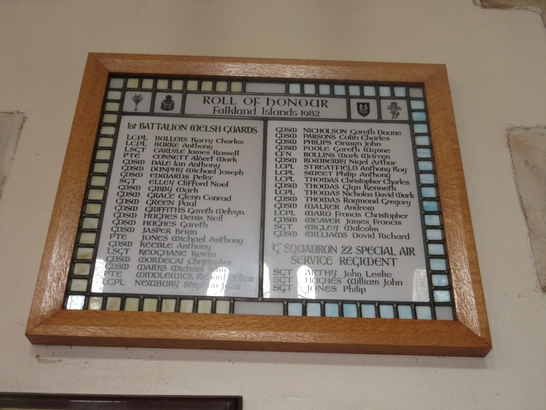 ROLL OF HONOUR
Falkland Islands 1982
1st BATTALION WELSH GUARDS
LCPL BULLERS Barry Charles
LCPL BURKE Anthony
LSGT CARLYLE James Russell
PTE CONNETT Albert Mark
GDSM DALE Ian Anthony
GDSM DUNPHY Michael Joseph
GDSM EDWARDS Peter
SGT ELLEY Clifford Noel
GDSM GIBBY Mark
GDSM GRACE Glenn Conrad
GDSM GREEN Paul
GDSM GRIFFITHS Gareth Melvyn
GDSM HUGHES Denis Neil
GDSM HUGHES Gareth
GDSM JASPER Brian
PTE JONES Michael Anthony
GDSM KEEBLE Anthony
LSGT KEOGHANE Kevin
GDSM MORDECAI Christopher
GDSM MARKS Michael John
PTE MIDDLEWICK Richard
LCPL NEWBURY Stephen John
GDSM NICHOLSON Gareth Doane
GDSM PARSONS Colin Charles
GDSM PHILIPS Eirwyn John
GDSM POOLE Gareth Wynne
CFN ROLLINS Mark Warren
GDSM ROWBERRY Nigel Arthur
LCPL STREATFIELD Anthony Roy
LCPL SWEET Philip Anthony
LCPL THOMAS Christopher Charles
GDSM THOMAS Glyn Kenneth
LCPL THOMAS Nicholas David Mark
GDSM THOMAS Raymond Gregory
GDSM WALKER Andrew
LCPL WARD Francis Christopher
GDSM WEAVER James Francis
SGT WIGLEY Malcolm
GDSM WILLIAMS David Richard
'G' SQUADRON 22 SPECIAL AIR
SERVICE REGIMENT
SGT ARTHY John Leslie
SGT HUGHES William John
SGT JONES Philip